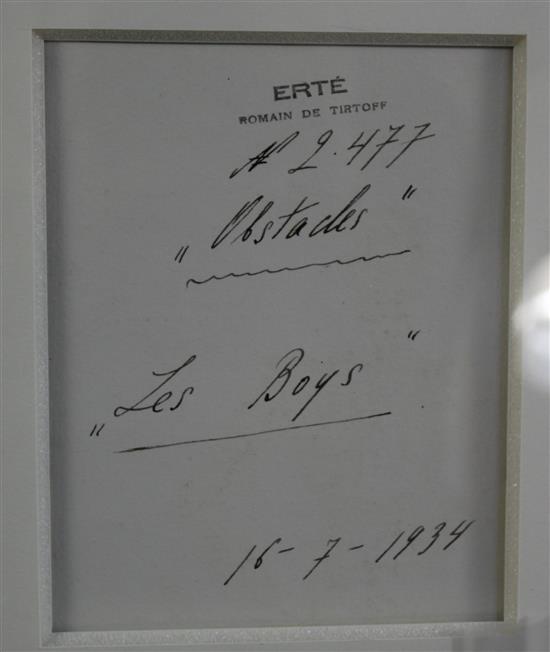 ERTÉ
ROMAIN DE TIRTOFF
N 2.477
„Obstacles"
„Les Boys"
16-7-1934